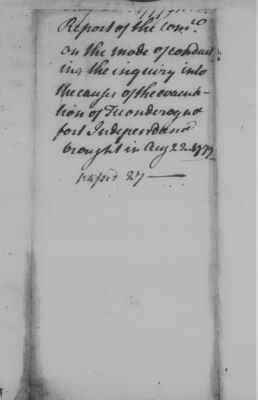 Report of the Com.ee
on the mode of conduct
ing the inquiry into
the cause of the evacua-
tion of Ticonderoga &
fort Independance
brought in Aug 22. 1777
passed 27